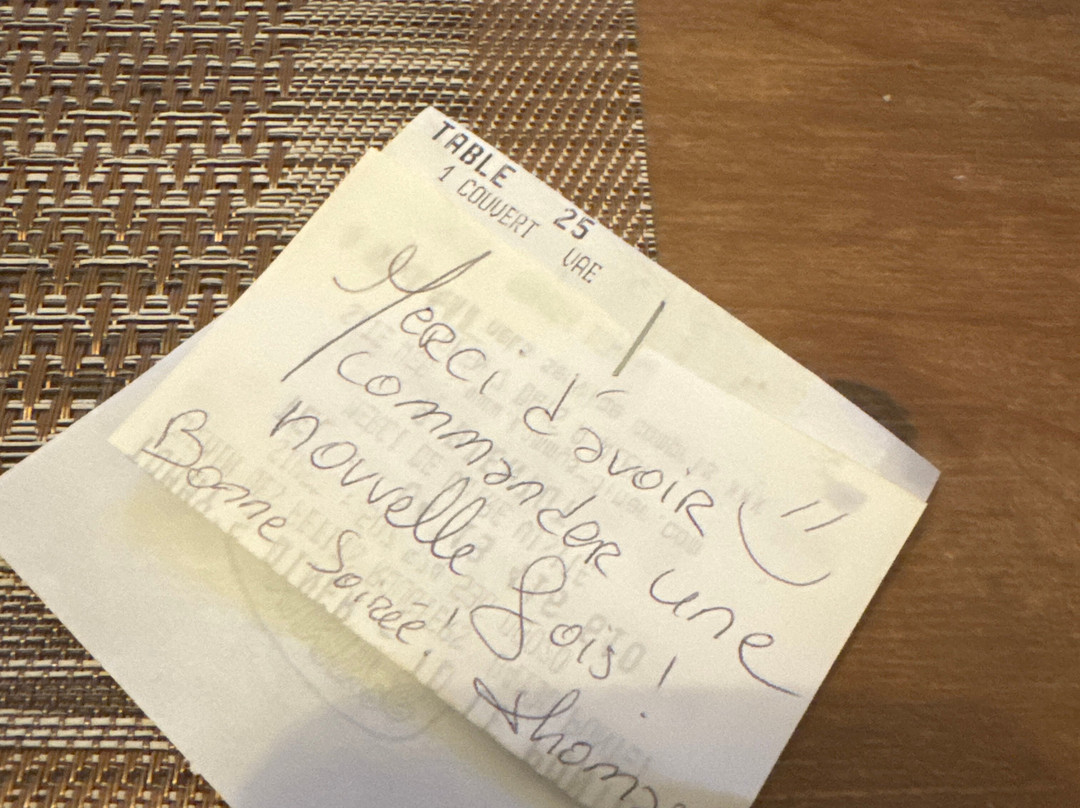 TABLE 25
1 COUVERT VAE
Merci d'avoir
commander une
nouvelle fois!
Bonne Soirée!